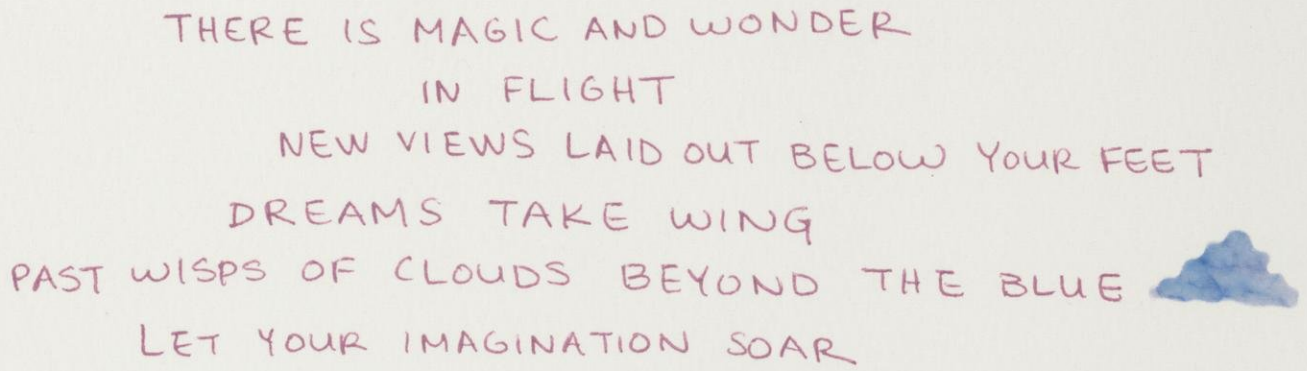 THERE IS MAGIC AND WONDER
IN FLIGHT
NEW VIEWS LAID OUT BELOW YOUR FEET
DREAMS TAKE WING
PAST WISPS OF CLOUDS BEYOND THE BLUE
LET YOUR IMAGINATION SOAR